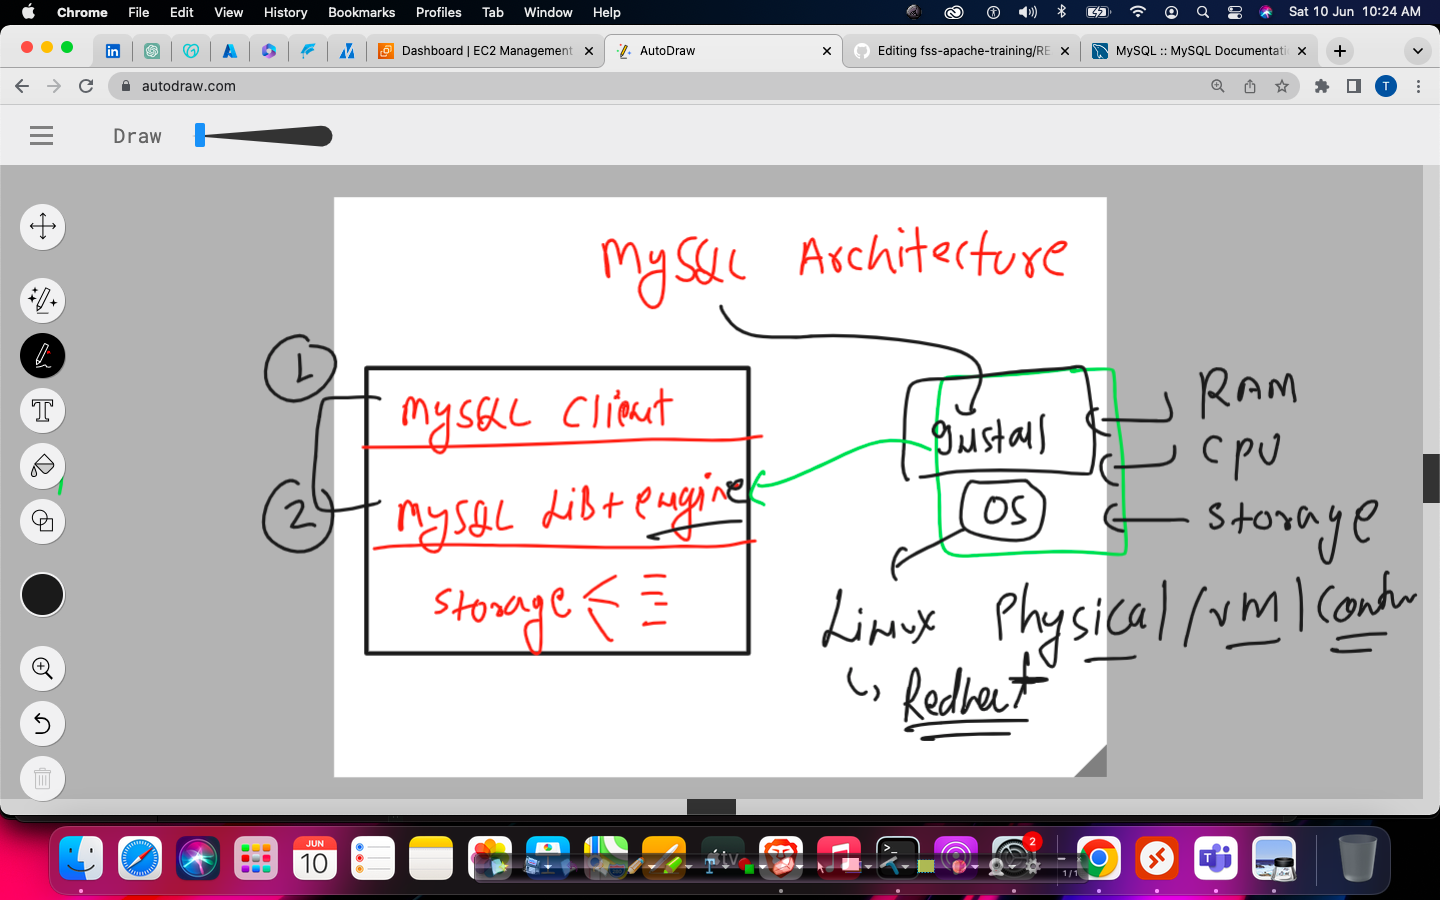 Chrome File Edit View History Bookmarks Profiles Tab Window Help Sat 10 Jun 10:24 AM
Dashboard | EC2 Management AutoDraw Editing fss-apache-training/RE MySQL :: MySQL Documentati
autodraw.com T
Draw
MySQL Architecture
1
MySQL Client
Install
RAM
CPU
2
MySQL LiB + engine
OS
storage
storage
Linux Physical / VM |
Redhat
JUN
10
tv
2
1/1